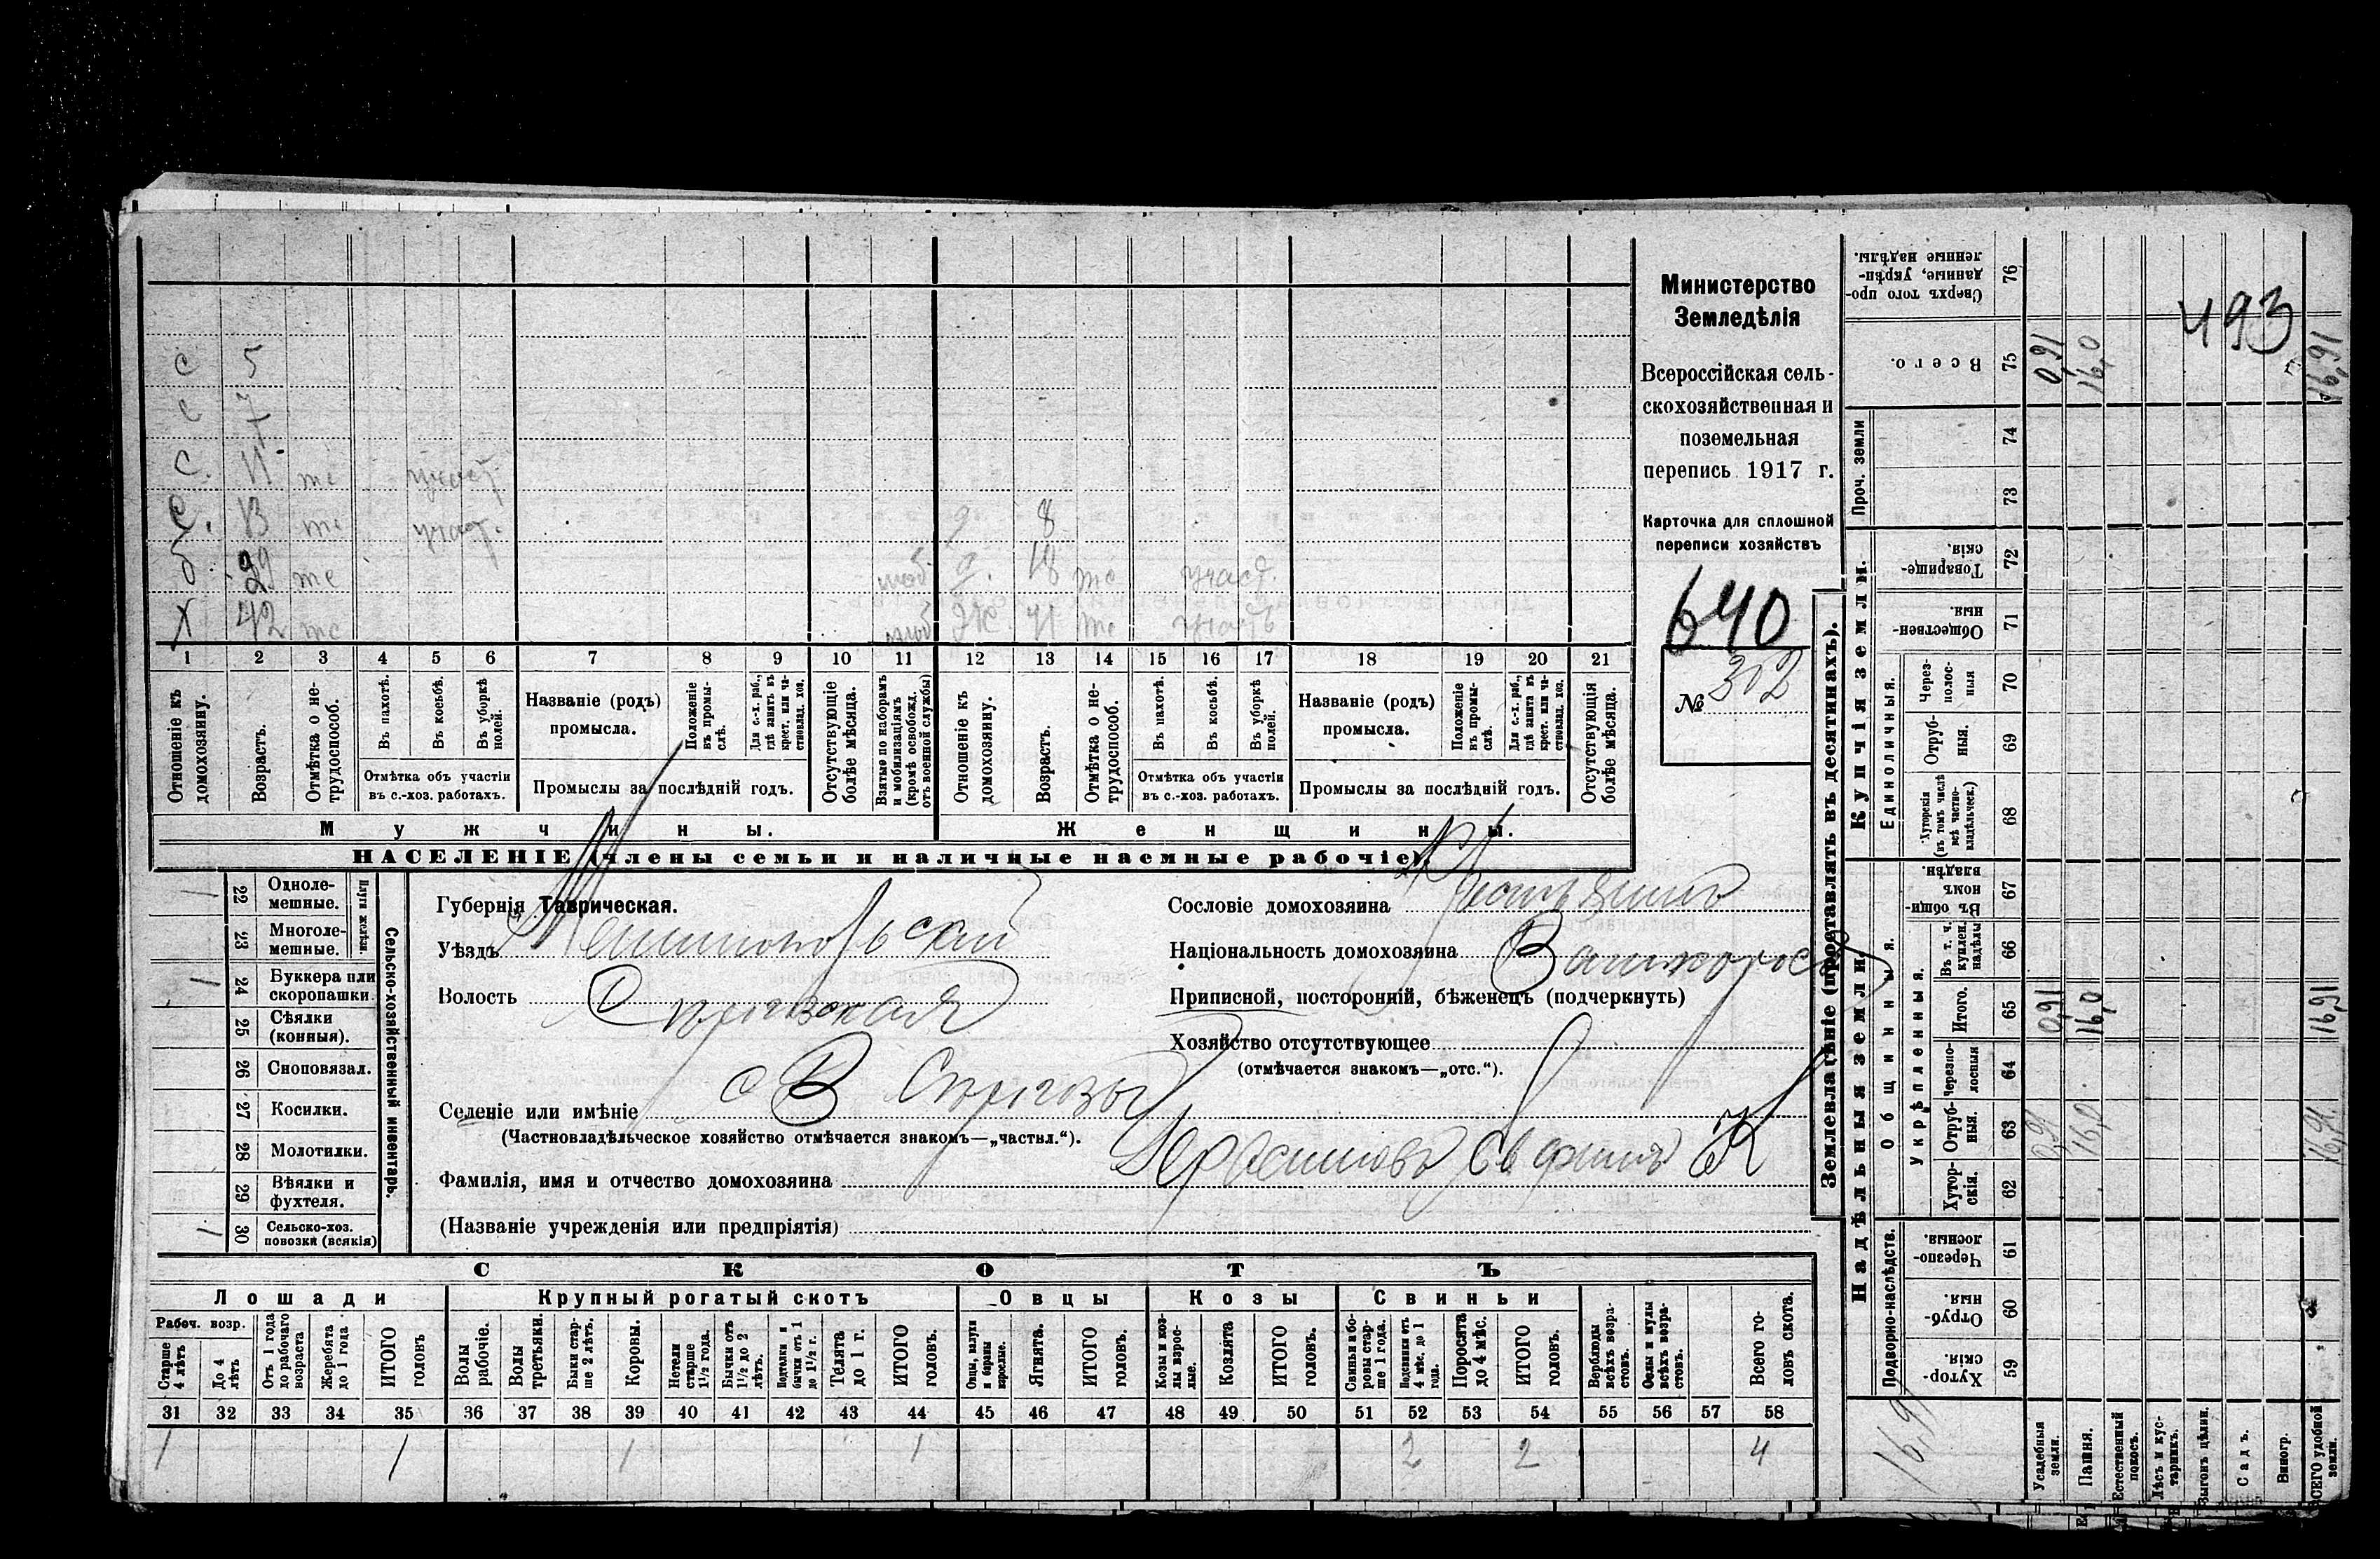 493
Министерство
Земледѣлія
Всероссійская сель-
скохозяйственная и
поземельная
перепись 1917 г.
Карточка для сплошной
переписи хозяйствъ
640
№ 302
с 5
с 7
с. 11
с. 13 9 8
б. 29
Х 42 41
1 2 3 4 5 6 7 8 9 10 11 12 13 14 15 16 17 18 19 20 21
Отношеніе къ домохозяину.
Возрастъ.
Отмѣтка о не-трудоспособ.
Въ пахотѣ.
Въ косьбѣ.
Въ уборкѣ полей.
Отмѣтка объ участіи
въ с.-хоз. работахъ.
Названіе (родъ)
промысла.
Положеніе въ промы-слѣ.
Для с.-х. раб., гдѣ занятъ въ крест. или ча-стновлад. хоз.
Промыслы за послѣдній годъ.
Отсутствующіе болѣе мѣсяца.
Взятые по наборамъ и мобилизаціямъ (кромѣ освобожд. отъ военной службы)
Отношеніе къ домохозяину.
Возрастъ.
Отмѣтка о не-трудоспособ.
Въ пахотѣ.
Въ косьбѣ.
Въ уборкѣ полей.
Отмѣтка объ участіи
въ с.-хоз. работахъ.
Названіе (родъ)
промысла.
Положеніе въ промы-слѣ.
Для с.-х. раб., гдѣ занята въ крест. или ча-стновлад. хоз.
Промыслы за послѣдній годъ.
Отсутствующія болѣе мѣсяца.
Мужчины.
Женщины.
НАСЕЛЕНІЕ (члены семьи и наличные наемные рабочіе).
Сельско-хозяйственный инвентарь.
Плуги желѣзн.
1 22 Одноле-мешные.
23 Многоле-мешные.
1 24 Буккера или скоропашки.
25 Сѣялки (конныя).
26 Сноповязал.
27 Косилки.
28 Молотилки.
29 Вѣялки и фухтеля.
1 30 Сельско-хоз. повозки (всякія)
Губернія Таврическая.
Уѣздъ
Волость
Селеніе или имѣніе
(Частновладѣльческое хозяйство отмѣчается знакомъ—„частвл.“).
Фамилія, имя и отчество домохозяина Герасимовъ Евфимъ К
(Названіе учрежденія или предпріятія)
Сословіе домохозяина
Національность домохозяина
Приписной, посторонній, бѣженецъ (подчеркнуть)
Хозяйство отсутствующее
(отмѣчается знакомъ—„отс.“).
СКОТЪ
Лошади
Крупный рогатый скотъ
Овцы
Козы
Свиньи
Рабоч. возр.
Старше 4 лѣтъ
До 4 лѣтъ
Отъ 1 года до рабочаго возраста
Жеребята до 1 года
ИТОГО головъ
Волы рабочіе.
Волы третьяки.
Быки стар-ше 2 лѣтъ.
Коровы.
Нетели старше 1½ года.
Бычки отъ 1½ до 2 лѣтъ.
Подтелки и бычки отъ 1 до 1½ г.
Телята до 1 г.
ИТОГО головъ.
Овцы, валухи и бараны взрослые.
Ягнята.
ИТОГО головъ.
Козы и коз-лы взрос-лые.
Козлята
ИТОГО головъ.
Свиньи и бо-ровы стар-ше 1 года.
Подсвинки отъ 4 мѣс. до 1 года.
Поросята до 4 мѣс.
ИТОГО головъ.
Верблюды всѣхъ возра-стовъ.
Ослы и мулы всѣхъ возра-стовъ.
Всего го-ловъ скота.
31 32 33 34 35 36 37 38 39 40 41 42 43 44 45 46 47 48 49 50 51 52 53 54 55 56 57 58
1 1 1 1 2 2 4
Землевладѣніе (проставлять въ десятинахъ).
Сверхъ того про-данные, укрѣп-ленные надѣлы. 76
Всего. 75 0,91 16,0 16,91
Проч. земли 74
73
Купчія земли.
Товарище-скія. 72
Обществен-ныя 71
Единоличныя.
Через-полос-ныя 70
Отруб-ныя. 69
Хуторскія (въ томъ числѣ всѣ частно-владѣльческ.) 68
Надѣльныя земли.
Общинныя.
Въ общин-номъ владѣн. 67
Въ т. ч. куплен. надѣлы 66
Укрѣпленныя.
Итого. 65 0,91 16,0 16,91
Черезпо-лосныя 64
Отруб-ныя. 63 0,91 16,0 16,91
Хутор-скія. 62
Подворно-наслѣдств.
Черезпо-лосныя. 61
Отруб-ныя 60
Хутор-скія. 59
Усадебныя земли.
Пашня.
Естественный покосъ.
Лѣсъ и кус-тарникъ.
Выгонъ цѣлин.
Садъ.
Виногр.
ВСЕГО удобной земли.